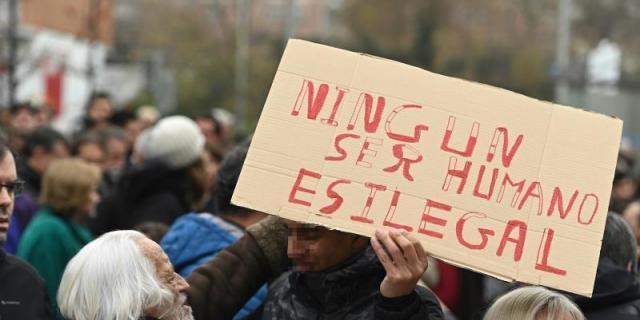 NINGUN
SER HUMANO
ES ILEGAL